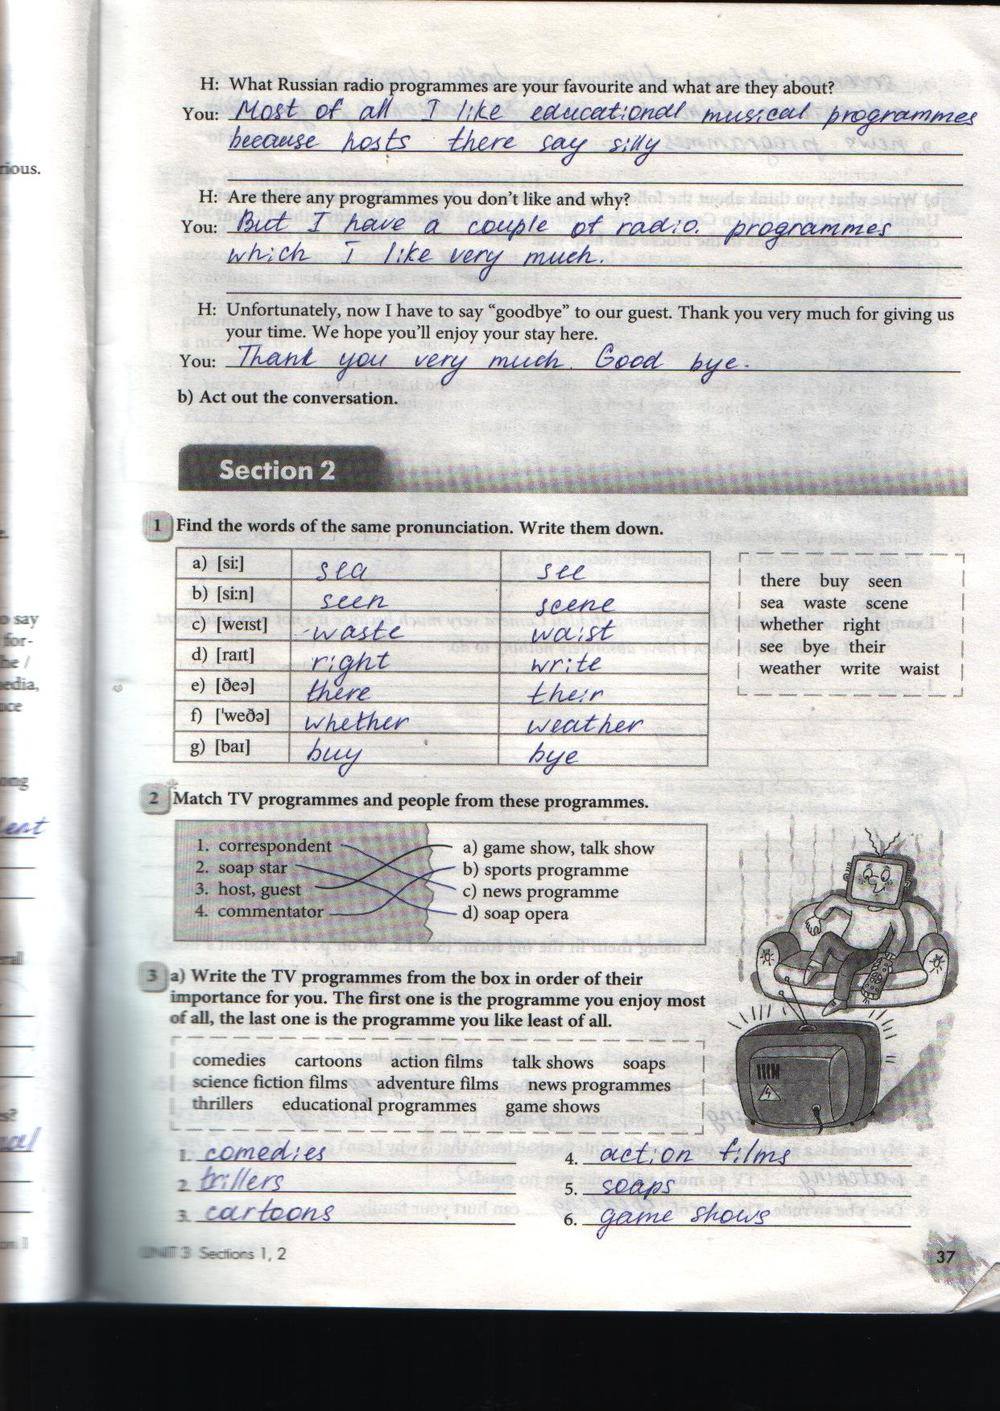 H: What Russian radio programmes are your favourite and what are they about?
You: Most of all I like educational musical programmes
because hosts there say silly
H: Are there any programmes you don't like and why?
You: But I have a couple of radio. programmes
which I like very much.
H: Unfortunately, now I have to say "goodbye" to our guest. Thank you very much for giving us
your time. We hope you'll enjoy your stay here.
You: Thank you very much. Good bye.
b) Act out the conversation.
Section 2
1 Find the words of the same pronunciation. Write them down.
a) [si:] sea see
b) [si:n] seen scene
c) [weɪst] waste waist
d) [raɪt] right write
e) [ðeə] there their
f) ['weðə] whether weather
g) [baɪ] buy bye
there buy seen
sea waste scene
whether right
see bye their
weather write waist
2 Match TV programmes and people from these programmes.
1. correspondent
2. soap star
3. host, guest
4. commentator
a) game show, talk show
b) sports programme
c) news programme
d) soap opera
3 a) Write the TV programmes from the box in order of their
importance for you. The first one is the programme you enjoy most
of all, the last one is the programme you like least of all.
comedies cartoons action films talk shows soaps
science fiction films adventure films news programmes
thrillers educational programmes game shows
1. comedies
2. trillers
3. cartoons
4. action films
5. soaps
6. game shows
UNIT 3 Sections 1, 2
37
rious.
say
for-
he /
edia,